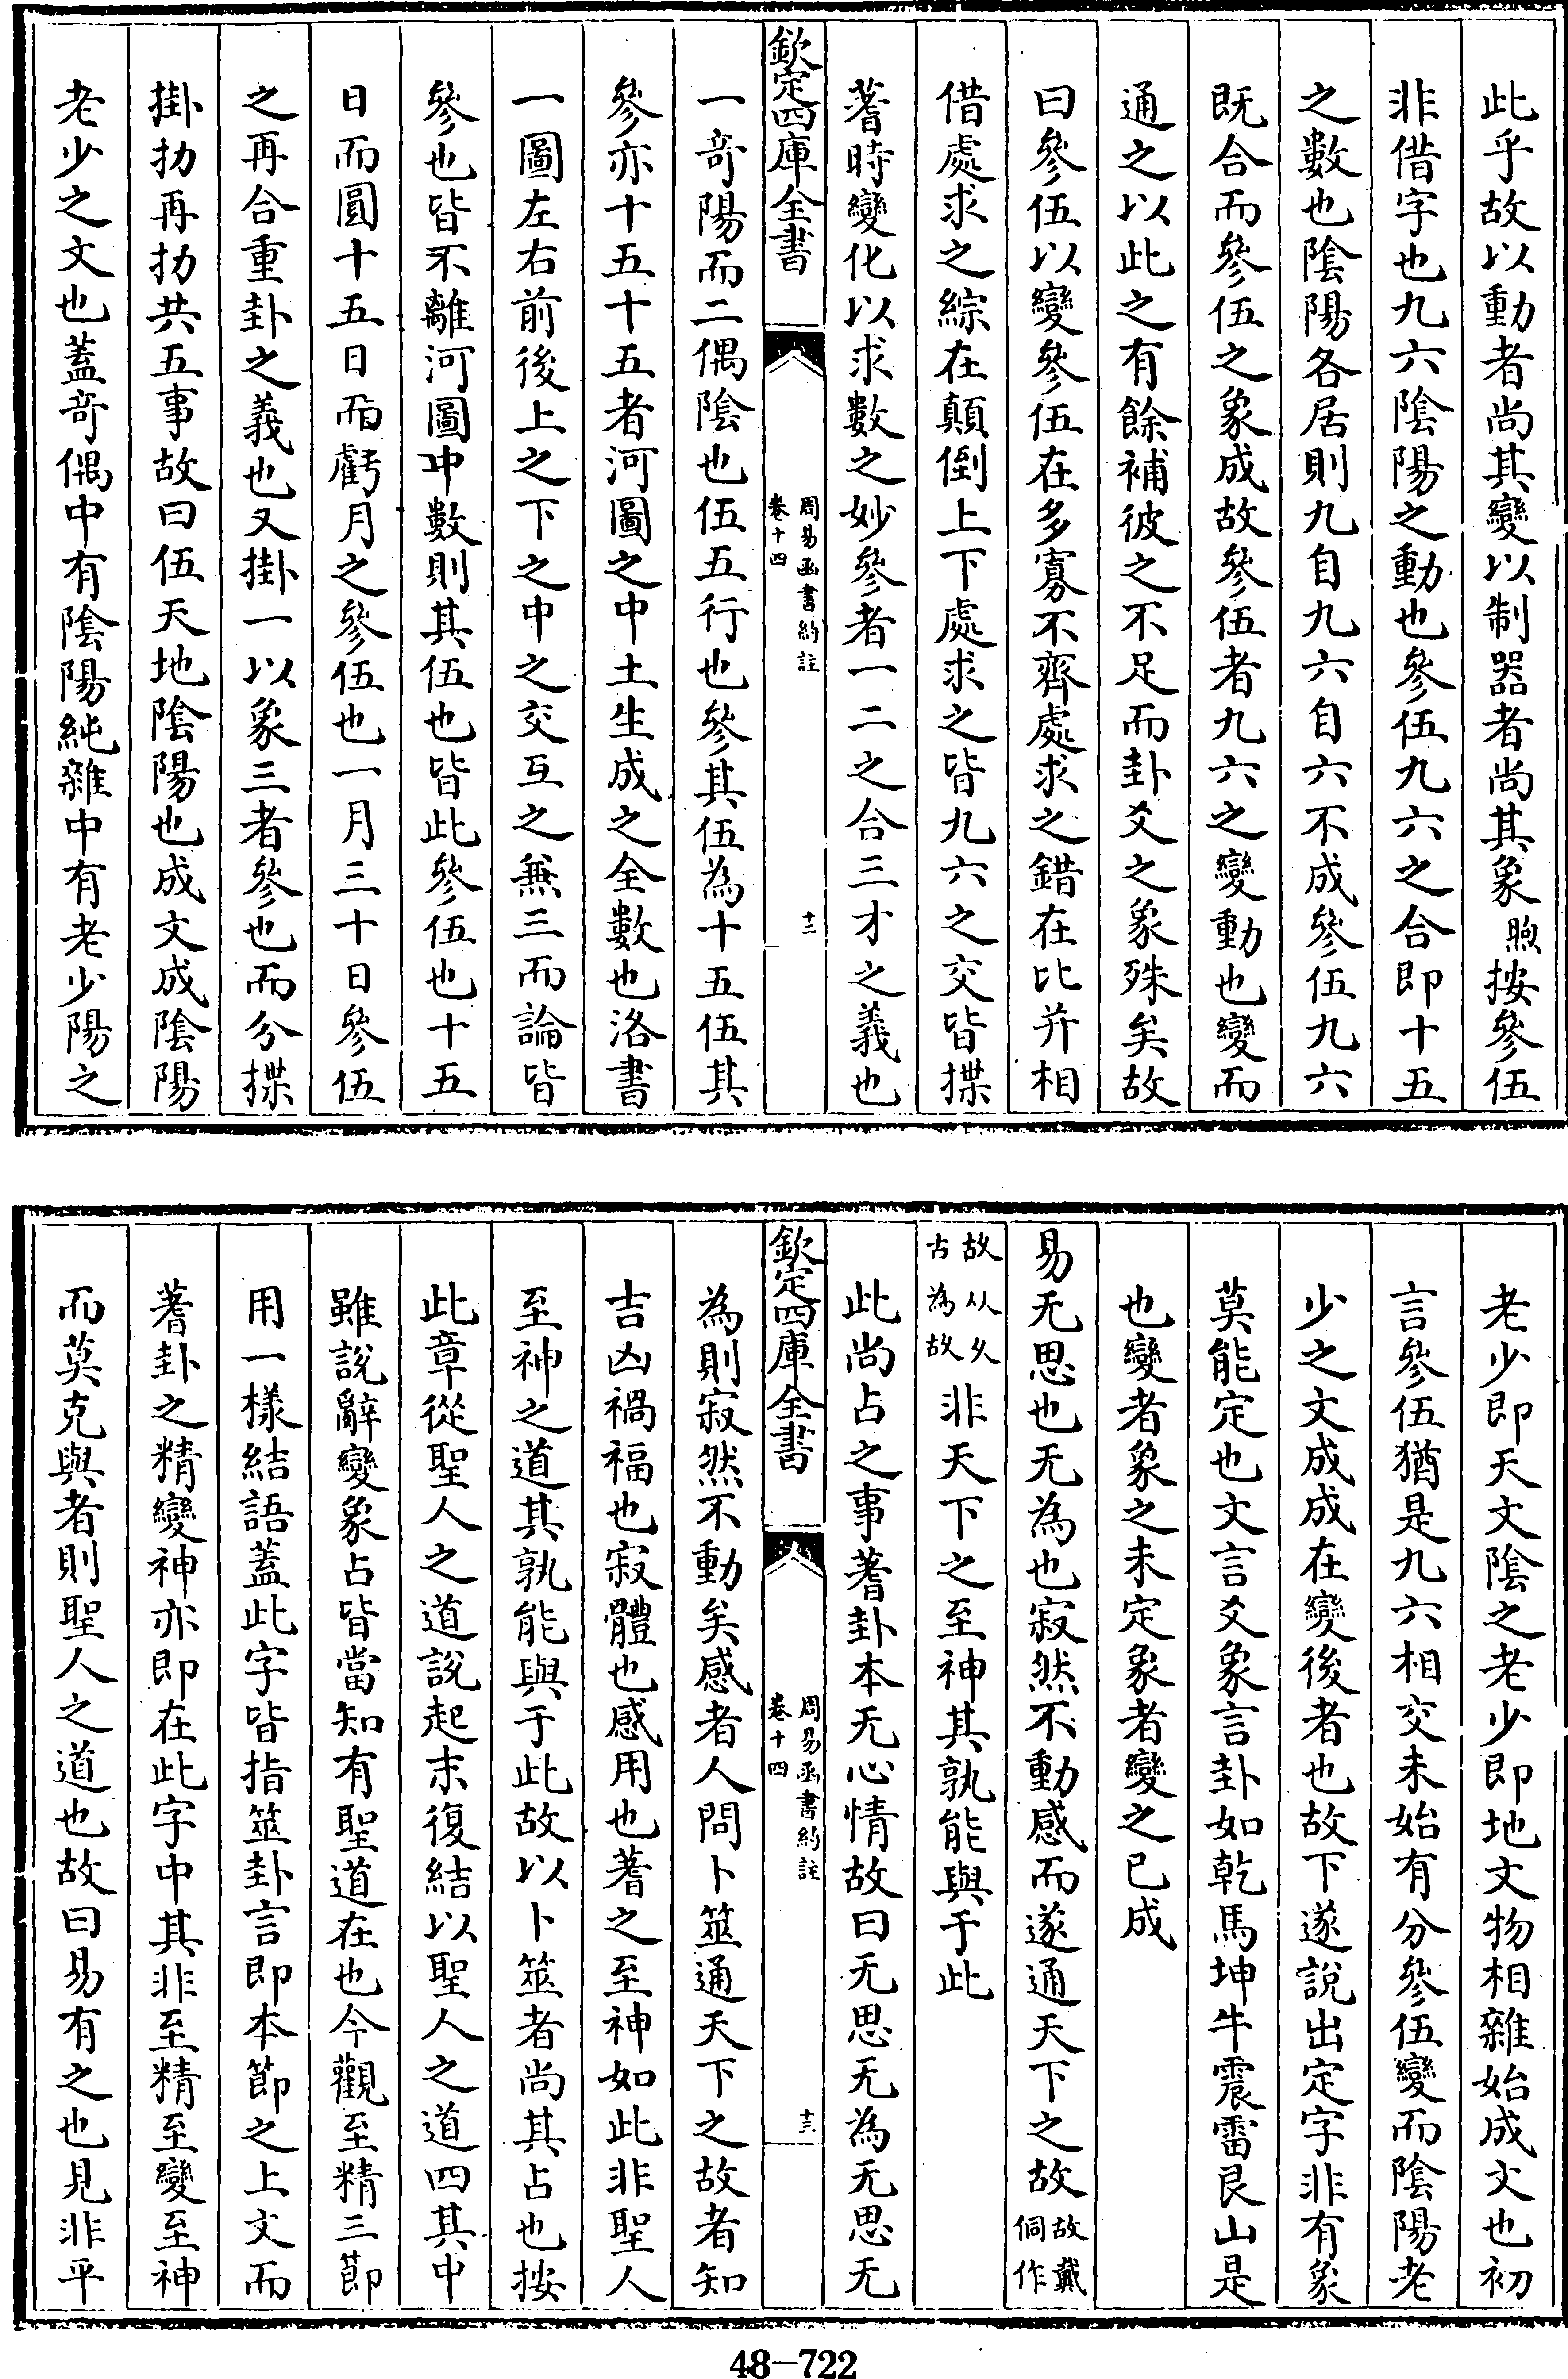 此乎故以動者尚其變以制器者尚其象煦按參伍
非借字也九六陰陽之動也參伍九六之合即十五
之數也陰陽各居則九自九六自六不成參伍九六
既合而參伍之象成故參伍者九六之變動也變而
通之以此之有餘補彼之不足而卦爻之象殊矣故
曰參伍以變參伍在多寡不齊處求之錯在比并相
借處求之綜在顛倒上下處求之皆九六之交皆揲
蓍時變化以求數之妙參者一二之合三才之義也
欽定四庫全書
周易函書約註
卷十四
十二
一奇陽而二偶陰也伍五行也參其伍為十五伍其
參亦十五十五者河圖之中土生成之全數也洛書
一圖左右前後上之下之中之交互之無三而論皆
參也皆不離河圖中數則其伍也皆此參伍也十五
日而圓十五日而虧月之參伍也一月三十日參伍
之再合重卦之義也又掛一以象三者參也而分揲
掛扐再扐共五事故曰伍天地陰陽也成文成陰陽
老少之文也蓋奇偶中有陰陽純雜中有老少陽之
老少即天文陰之老少即地文物相雜始成文也初
言參伍猶是九六相交未始有分參伍變而陰陽老
少之文成成在變後者也故下遂說出定字非有象
莫能定也文言爻象言卦如乾馬坤牛震雷艮山是
也變者象之未定象者變之已成
易无思也无為也寂然不動感而遂通天下之故故戴侗作
故从攵古為故非天下之至神其孰能與于此
此尚占之事蓍卦本无心情故曰无思无為无思无
欽定四庫全書
周易函書約註
卷十四
十三
為則寂然不動矣感者人問卜筮通天下之故者知
吉凶禍福也寂體也感用也蓍之至神如此非聖人
至神之道其孰能與于此故以卜筮者尚其占也按
此章從聖人之道說起末復結以聖人之道四其中
雖說辭變象占皆當知有聖道在也今觀至精三節
用一樣結語蓋此字皆指筮卦言即本節之上文而
蓍卦之精變神亦即在此字中其非至精至變至神
而莫克與者則聖人之道也故曰易有之也見非平
48-722